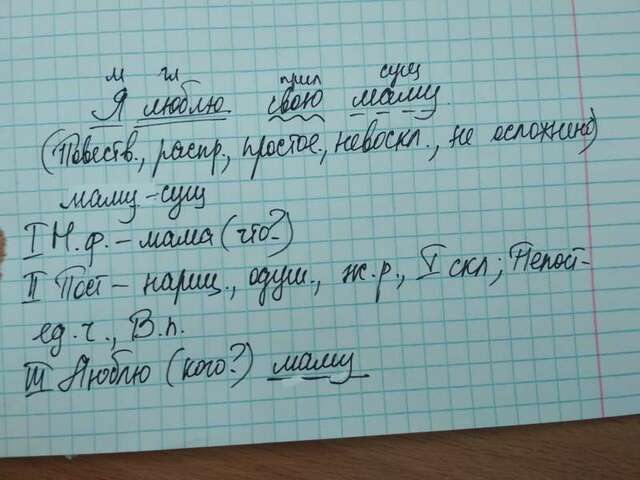 м гл прил сущ
Я люблю свою маму.
(Повеств., распр., простое, невоскл., не осложнено)
маму - сущ
I Н.ф. - мама (что?)
II Пост - нариц., одуш., ж.р., I скл; Непост -
ед.ч., В.п.
III Люблю (кого?) маму